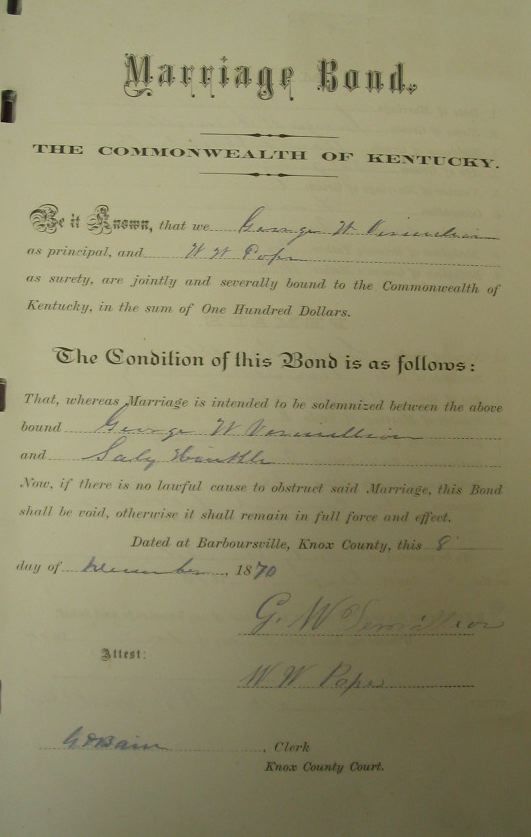 Marriage Bond.
THE COMMONWEALTH OF KENTUCKY.
Be it Known, that we George W Vermillion
as principal, and W W Pope
as surety, are jointly and severally bound to the Commonwealth of
Kentucky, in the sum of One Hundred Dollars.
The Condition of this Bond is as follows:
That, whereas Marriage is intended to be solemnized between the above
bound George W Vermillion
and Saly
Now, if there is no lawful cause to obstruct said Marriage, this Bond
shall be void, otherwise it shall remain in full force and effect.
Dated at Barboursville, Knox County, this 8
day of December, 1870
G. W Vermillion
Attest:
W W Pope
Clerk
Knox County Court.